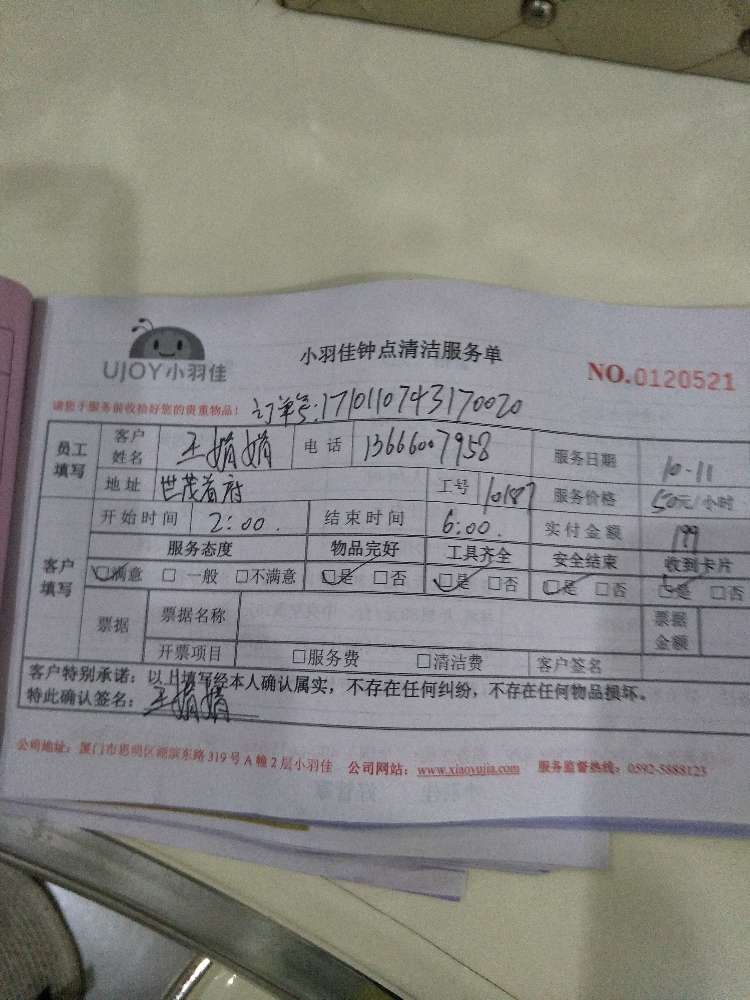 UJOY小羽佳
小羽佳钟点清洁服务单
NO.0120521
请您于服务前收拾好您的贵重物品!
订单号:1710110743170020
员工填写 客户姓名 王娟娟 电话 13666007958 服务日期 10-11
地址 世茂首府 工号 10187 服务价格 50元/小时
客户填写 开始时间 2:00 结束时间 6:00 实付金额 199
服务态度 物品完好 工具齐全 安全结束 收到卡片
☑满意 □一般 □不满意 ☑是 □否 ☑是 □否 ☑是 □否 ☑是 □否
票据 票据名称 票据金额
开票项目 □服务费 □清洁费 客户签名
客户特别承诺:以上填写经本人确认属实,不存在任何纠纷,不存在任何物品损坏。
特此确认签名:王娟娟
公司地址:厦门市思明区湖滨东路319号A幢2层小羽佳 公司网站:www.xiaoyujia.com 服务监督热线:0592-5888123